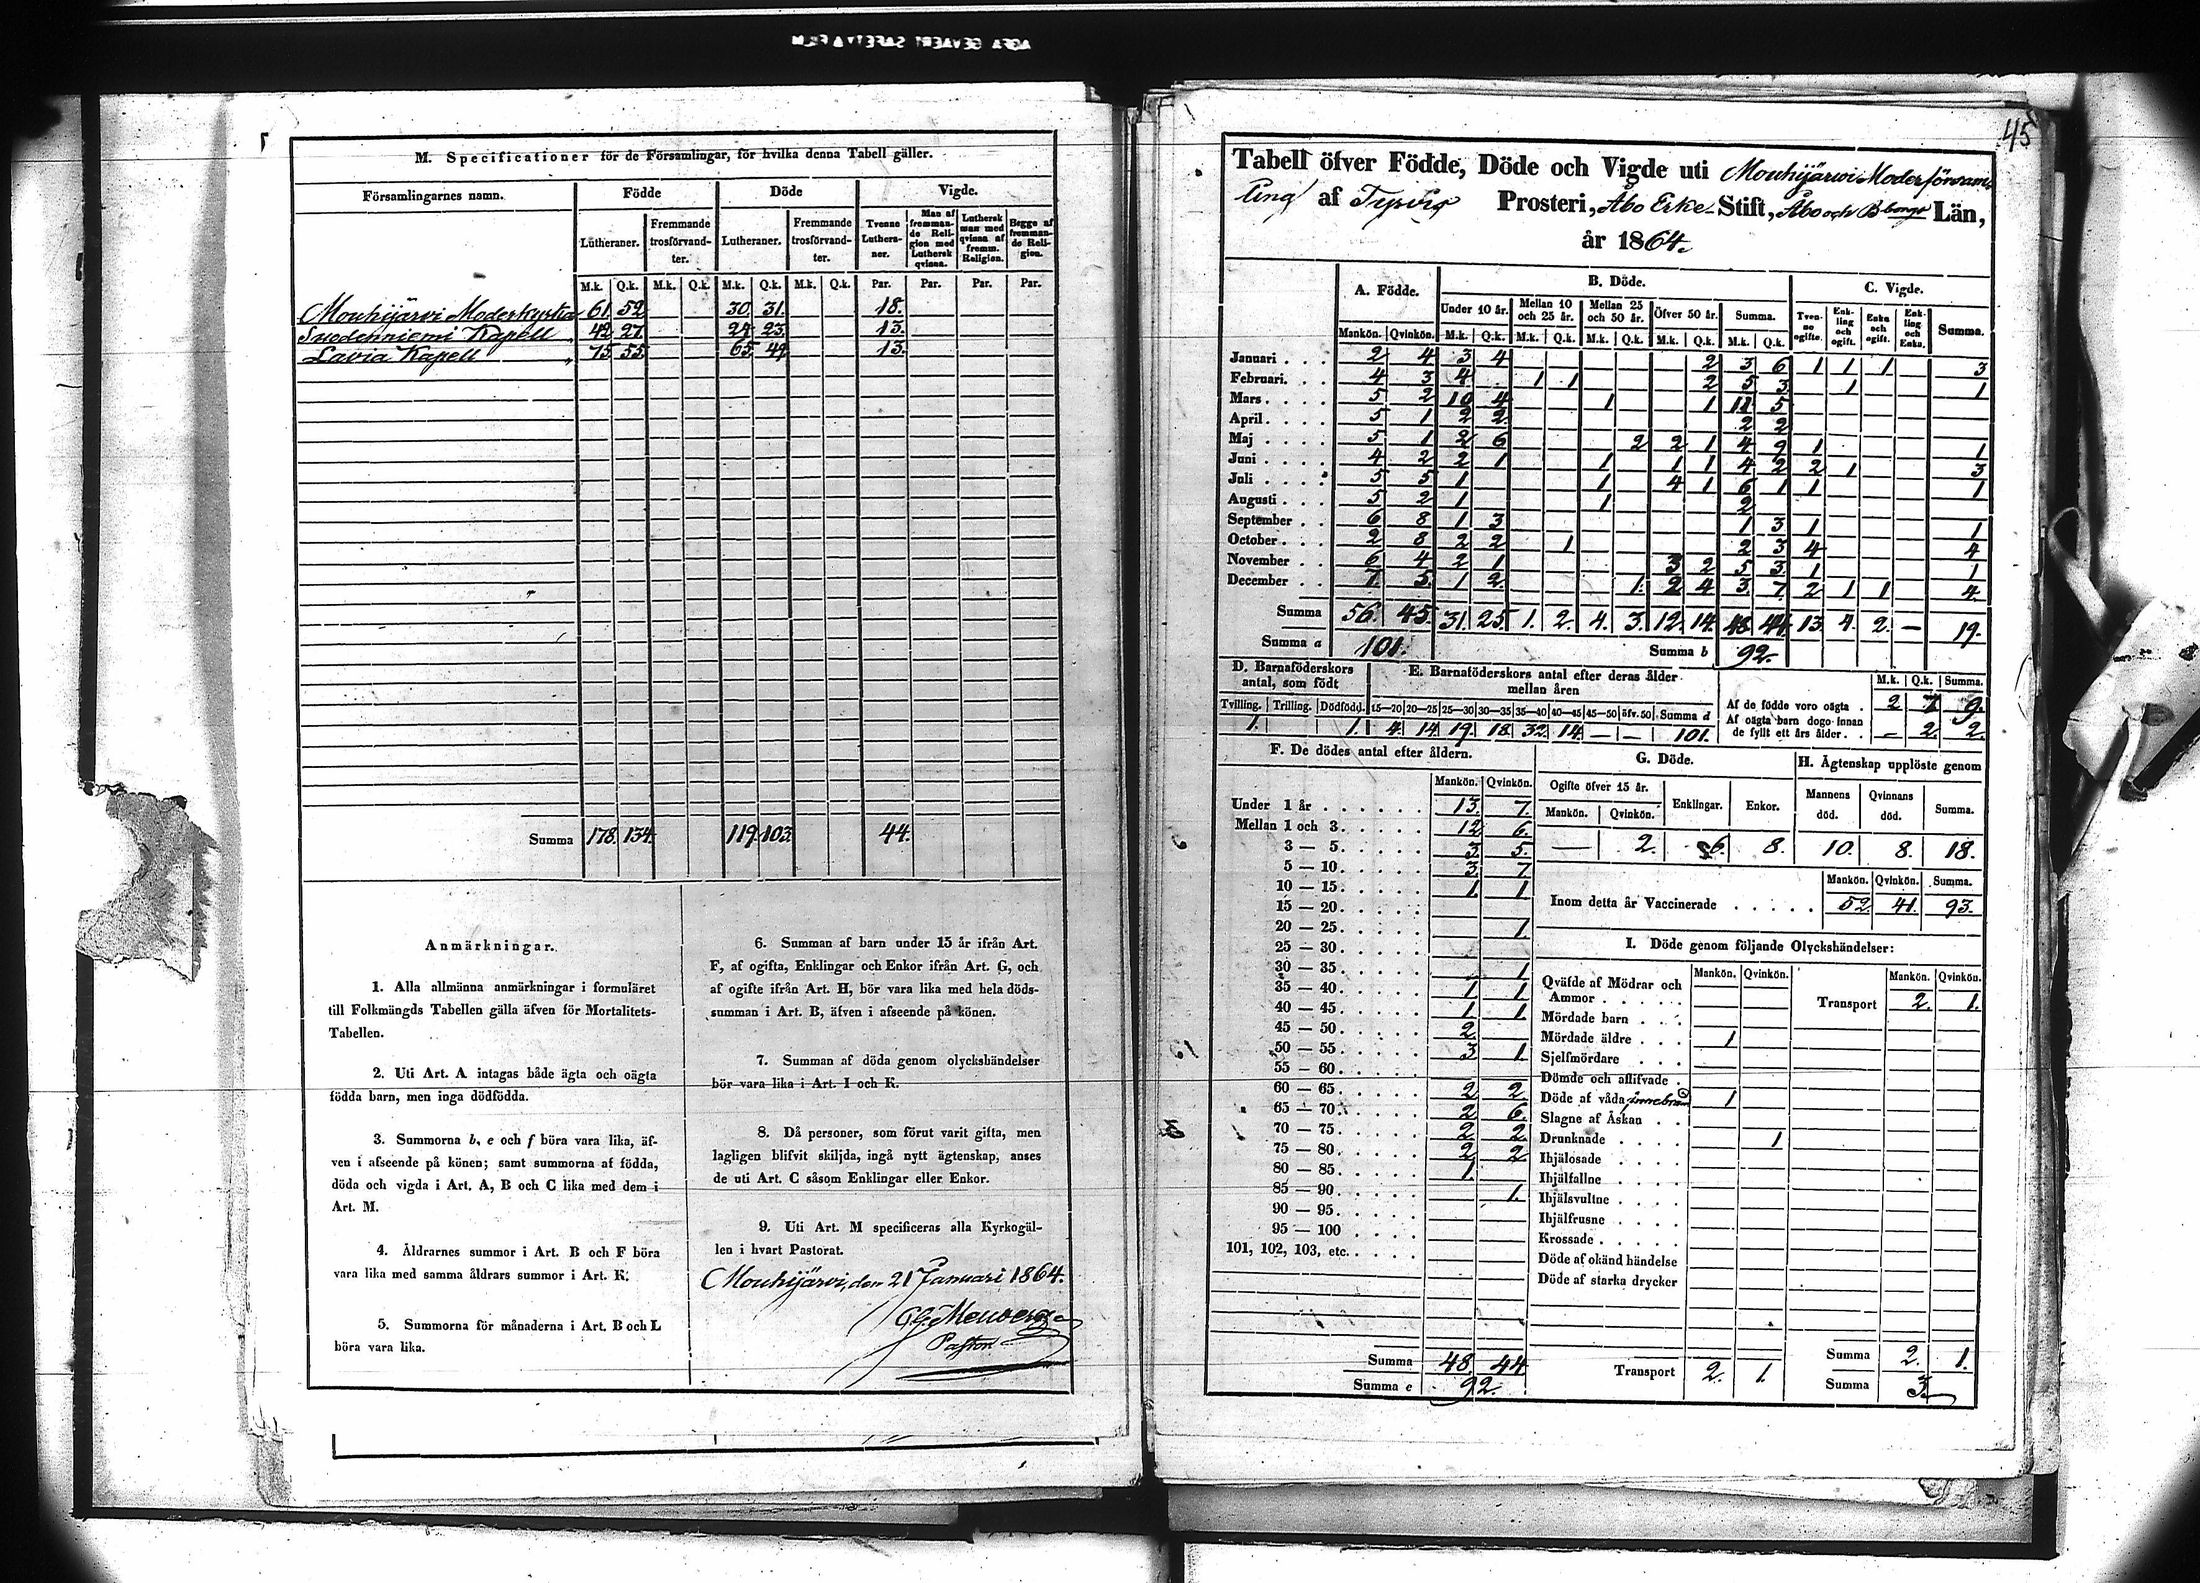 M. Specificationer för de Församlingar, för hvilka denna Tabell gäller.
Församlingarnes namn. Födde Döde Vigde.
Lutheraner. Fremmande trosförvandter. Lutheraner. Fremmande trosförvandter. Tvenne Lutheraner. Man af fremmande Religion med Luthersk qvinna. Luthersk man med qvinna af fremm. Religion. Begge af fremmande Religion.
M.k. Q.k. M.k. Q.k. M.k. Q.k. M.k. Q.k. Par. Par. Par. Par.
Mouhijärvi Moderkyrka 61. 52. 30. 31. 18.
Suodenniemi Kapell 42. 27. 24. 23. 13.
Lavia Kapell 75. 55. 65. 49. 13.
Summa 178. 134. 119. 103. 44.
Anmärkningar.
1. Alla allmänna anmärkningar i formuläret
till Folkmängds Tabellen gälla äfven för Mortalitets-
Tabellen.
2. Uti Art. A intagas både ägta och oägta
födda barn, men inga dödfödda.
3. Summorna b, e och f böra vara lika, äf-
ven i afseende på könen; samt summorna af födda,
döda och vigda i Art. A, B och C lika med dem i
Art. M.
4. Åldrarnes summor i Art. B och F böra
vara lika med samma åldrars summor i Art. K.
5. Summorna för månaderna i Art. B och L
böra vara lika.
6. Summan af barn under 15 år ifrån Art.
F, af ogifta, Enklingar och Enkor ifrån Art. G, och
af ogifte ifrån Art. H, bör vara lika med hela döds-
summan i Art. B, äfven i afseende på könen.
7. Summan af döda genom olyckshändelser
bör vara lika i Art. I och K.
8. Då personer, som förut varit gifta, men
lagligen blifvit skiljda, ingå nytt ägtenskap, anses
de uti Art. C såsom Enklingar eller Enkor.
9. Uti Art. M specificeras alla Kyrkogäl-
len i hvart Pastorat.
Mouhijärvi, den 21 Januari 1864.
Pastor
45
Tabell öfver Födde, Döde och Vigde uti Mouhijärvi Moderförsam-
ling af Prosteri, Åbo Erke-Stift, Åbo och B-borgs Län,
år 1864.
A. Födde. B. Döde. C. Vigde.
Under 10 år. Mellan 10 och 25 år. Mellan 25 och 50 år. Öfver 50 år. Summa. Tvenne ogifte. Enkling och ogift. Enka och ogift. Enkling och Enka. Summa.
Mankön. Qvinkön. M.k. Q.k. M.k. Q.k. M.k. Q.k. M.k. Q.k. M.k. Q.k.
Januari 2 4 3 4 2 3 6 1 1 1 3
Februari. 4 3 4 1 1 2 5 3 1 1
Mars 5 2 10 4 1 1 11 5
April 5 1 2 2 2 2
Maj 5 1 2 6 2 2 1 4 9 1 1
Juni 4 2 2 1 1 1 1 4 2 2 1 3
Juli 5 5 1 1 4 1 6 1 1 1
Augusti 5 2 1 1 2
September 6 8 1 3 1 3 1 1
October 2 8 2 2 1 2 3 4 4
November 6 4 2 1 3 2 5 3 1 1
December 7 5 1 2 1 2 4 3 7 2 1 1 4
Summa 56. 45. 31. 25. 1. 2. 4. 3. 12. 14. 48 44 13 4. 2. — 19.
Summa a 101. Summa b 92.
D. Barnaföderskors antal, som födt
E. Barnaföderskors antal efter deras ålder mellan åren
M.k. Q.k. Summa.
Tvilling. Trilling. Dödfödd. 15—20 20—25 25—30 30—35 35—40 40—45 45—50 öfv. 50 Summa d
1. 1. 4. 14. 19. 18. 32. 14. — — 101.
Af de födde voro oägta 2 7 9.
Af oägta barn dogo innan
de fyllt ett års ålder — 2. 2.
F. De dödes antal efter åldern.
Mankön. Qvinkön.
Under 1 år 13. 7.
Mellan 1 och 3 12 6.
3 — 5 3 5.
5 — 10 3 7
10 — 15 1. 1
15 — 20
20 — 25 1.
25 — 30
30 — 35 1
35 — 40 1 1
40 — 45 1 1.
45 — 50 2
50 — 55 3 1
55 — 60
60 — 65 2 2
65 — 70 2 6.
70 — 75 2 2
75 — 80 2 2
80 — 85 1.
85 — 90 1.
90 — 95
95 — 100
101, 102, 103, etc.
Summa 48. 44
Summa e 92.
G. Döde.
Ogifte öfver 15 år. Enklingar. Enkor.
Mankön. Qvinkön.
— 2. 6. 8.
H. Ägtenskap upplöste genom
Mannens död. Qvinnans död. Summa.
10. 8. 18.
Mankön. Qvinkön. Summa.
Inom detta år Vaccinerade 52. 41. 93.
I. Döde genom följande Olyckshändelser:
Mankön. Qvinkön. Mankön. Qvinkön.
Qväfde af Mödrar och
Ammor
Transport 2. 1.
Mördade barn
Mördade äldre 1
Sjelfmördare
Dömde och aflifvade
Döde af våda 1
Slagne af Åskan
Drunknade 1
Ihjälosade
Ihjälfallne
Ihjälsvultne
Ihjälfrusne
Krossade
Döde af okänd händelse
Döde af starka drycker
Transport 2. 1.
Summa 2. 1.
Summa 3.